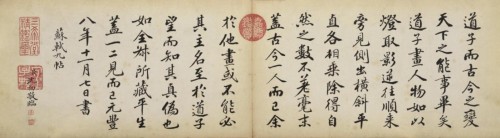 道子而古今之變
天下之能事畢矣
道子畫人物如以
燈取影逆往順來
旁見側出橫斜平
直各相乘除得自
然之數不差毫末
蓋古今一人而已余
於他畫或不能必
其主名至於道子
望而知其真偽也
如全叔所藏平生
蓋一二見而已元豐
八年十一月七日書
蘇軾九帖
敬臨